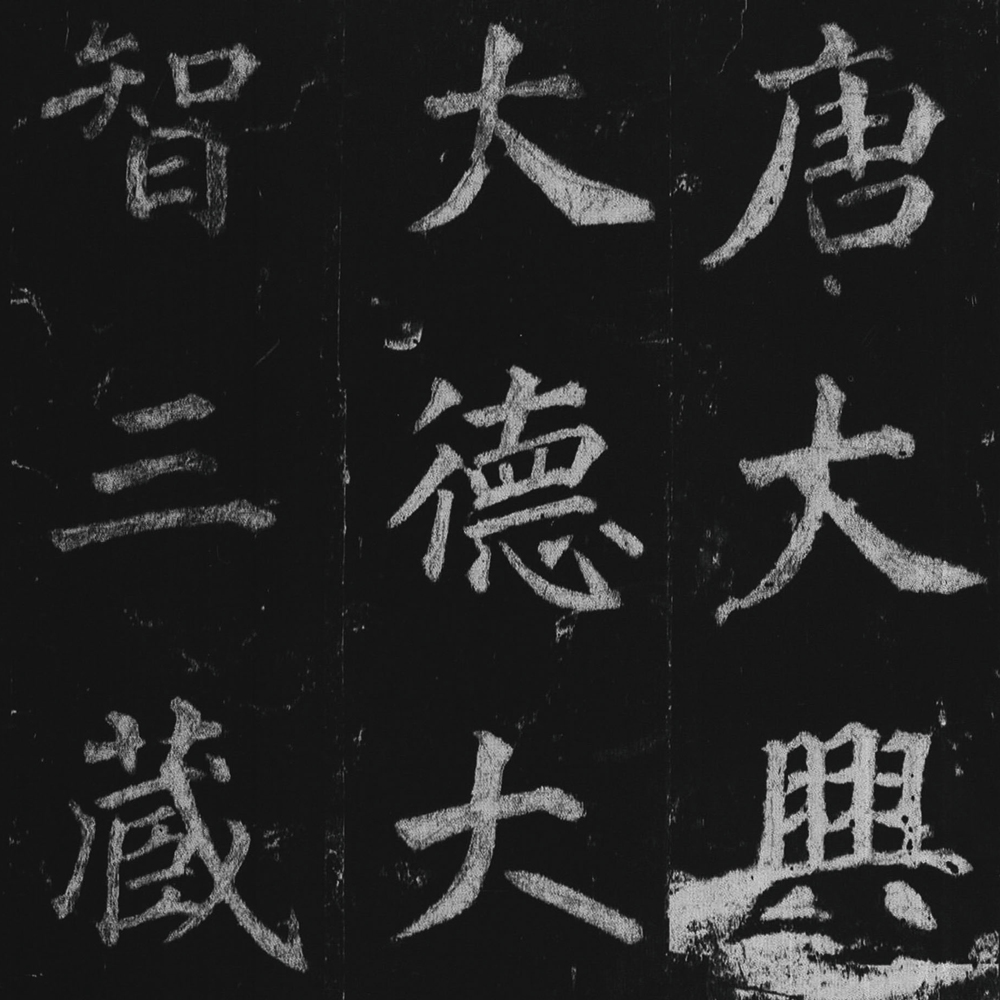 唐大興
大德大
智三藏